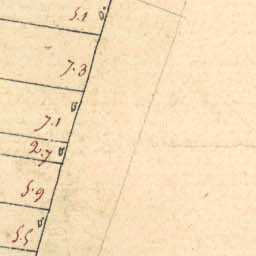 5.1
7.3
7.1
2.7
5.9
5.5